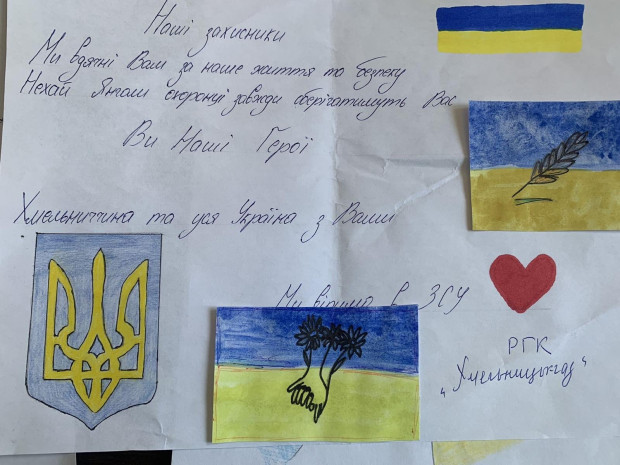 Наші захисники
Ми вдячні Вам за наше життя то безпеку
Нехай Янголи охоронці завжди оберігатимуть Вас
Ви Наші Герої
Хмельниччина та уся Україна з Вами
Ми віримо в ЗСУ
РГК
"Хмельницькгаз"